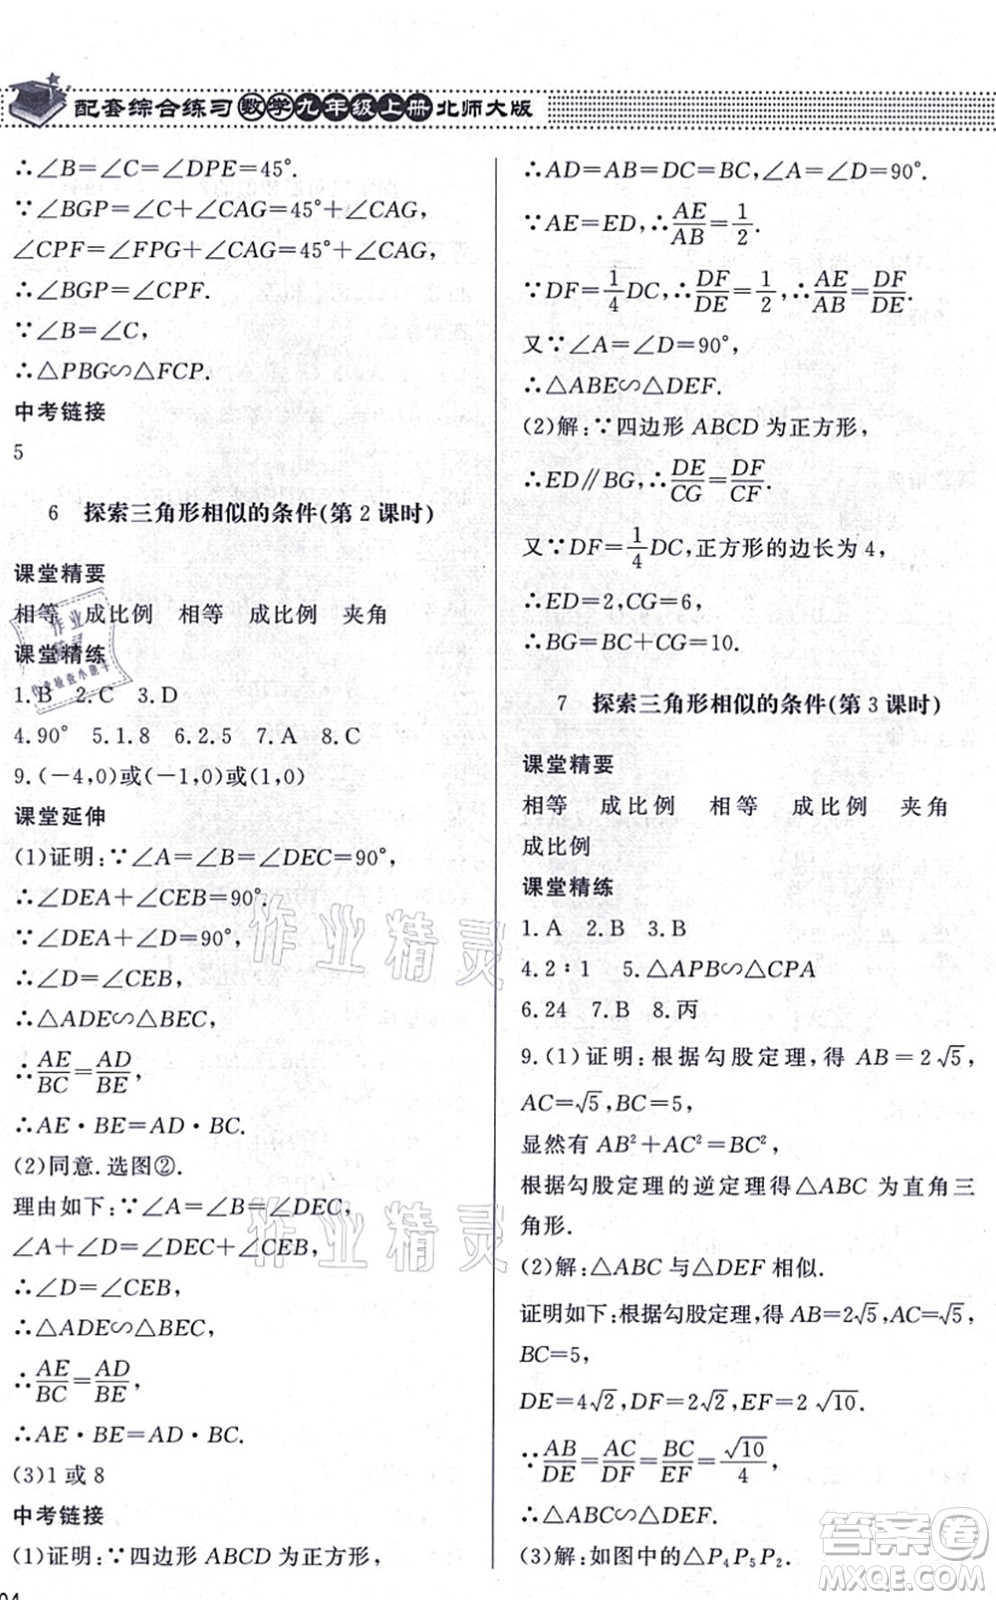 配套综合练习 数学九年级上册 北师大版
∴∠B=∠C=∠DPE=45°.
∵∠BGP=∠C+∠CAG=45°+∠CAG,
∠CPF=∠FPG+∠CAG=45°+∠CAG,
∴∠BGP=∠CPF.
∵∠B=∠C,
∴△PBG∽△FCP.
中考链接
5
6 探索三角形相似的条件(第2课时)
课堂精要
相等 成比例 相等 成比例 夹角
课堂精练
1.B 2.C 3.D
4.90° 5.1.8 6.2.5 7.A 8.C
9.(-4,0)或(-1,0)或(1,0)
课堂延伸
(1)证明:∵∠A=∠B=∠DEC=90°,
∴∠DEA+∠CEB=90°.
∵∠DEA+∠D=90°,
∴∠D=∠CEB,
∴△ADE∽△BEC,
∴AE/BC=AD/BE,
∴AE·BE=AD·BC.
(2)同意.选图②.
理由如下:∵∠A=∠B=∠DEC,
∠A+∠D=∠DEC+∠CEB,
∴∠D=∠CEB,
∴△ADE∽△BEC,
∴AE/BC=AD/BE,
∴AE·BE=AD·BC.
(3)1或8
中考链接
(1)证明:∵四边形ABCD为正方形,
∴AD=AB=DC=BC,∠A=∠D=90°.
∵AE=ED,∴AE/AB=1/2.
∵DF=1/4DC,∴DF/DE=1/2,∴AE/AB=DF/DE.
又∵∠A=∠D=90°,
∴△ABE∽△DEF.
(2)解:∵四边形ABCD为正方形,
∴ED∥BG,∴DE/CG=DF/CF.
又∵DF=1/4DC,正方形的边长为4,
∴ED=2,CG=6,
∴BG=BC+CG=10.
7 探索三角形相似的条件(第3课时)
课堂精要
相等 成比例 相等 成比例 夹角
成比例
课堂精练
1.A 2.B 3.B
4.2∶1 5.△APB∽△CPA
6.24 7.B 8.丙
9.(1)证明:根据勾股定理,得AB=2√5,
AC=√5,BC=5,
显然有AB²+AC²=BC²,
根据勾股定理的逆定理得△ABC为直角三
角形.
(2)解:△ABC与△DEF相似.
证明如下:根据勾股定理,得AB=2√5,AC=√5,
BC=5,
DE=4√2,DF=2√2,EF=2√10.
∵AB/DE=AC/DF=BC/EF=√10/4,
∴△ABC∽△DEF.
(3)解:如图中的△P₄P₅P₂.
作业精灵
作业精灵
答案圈
MXQE.COM